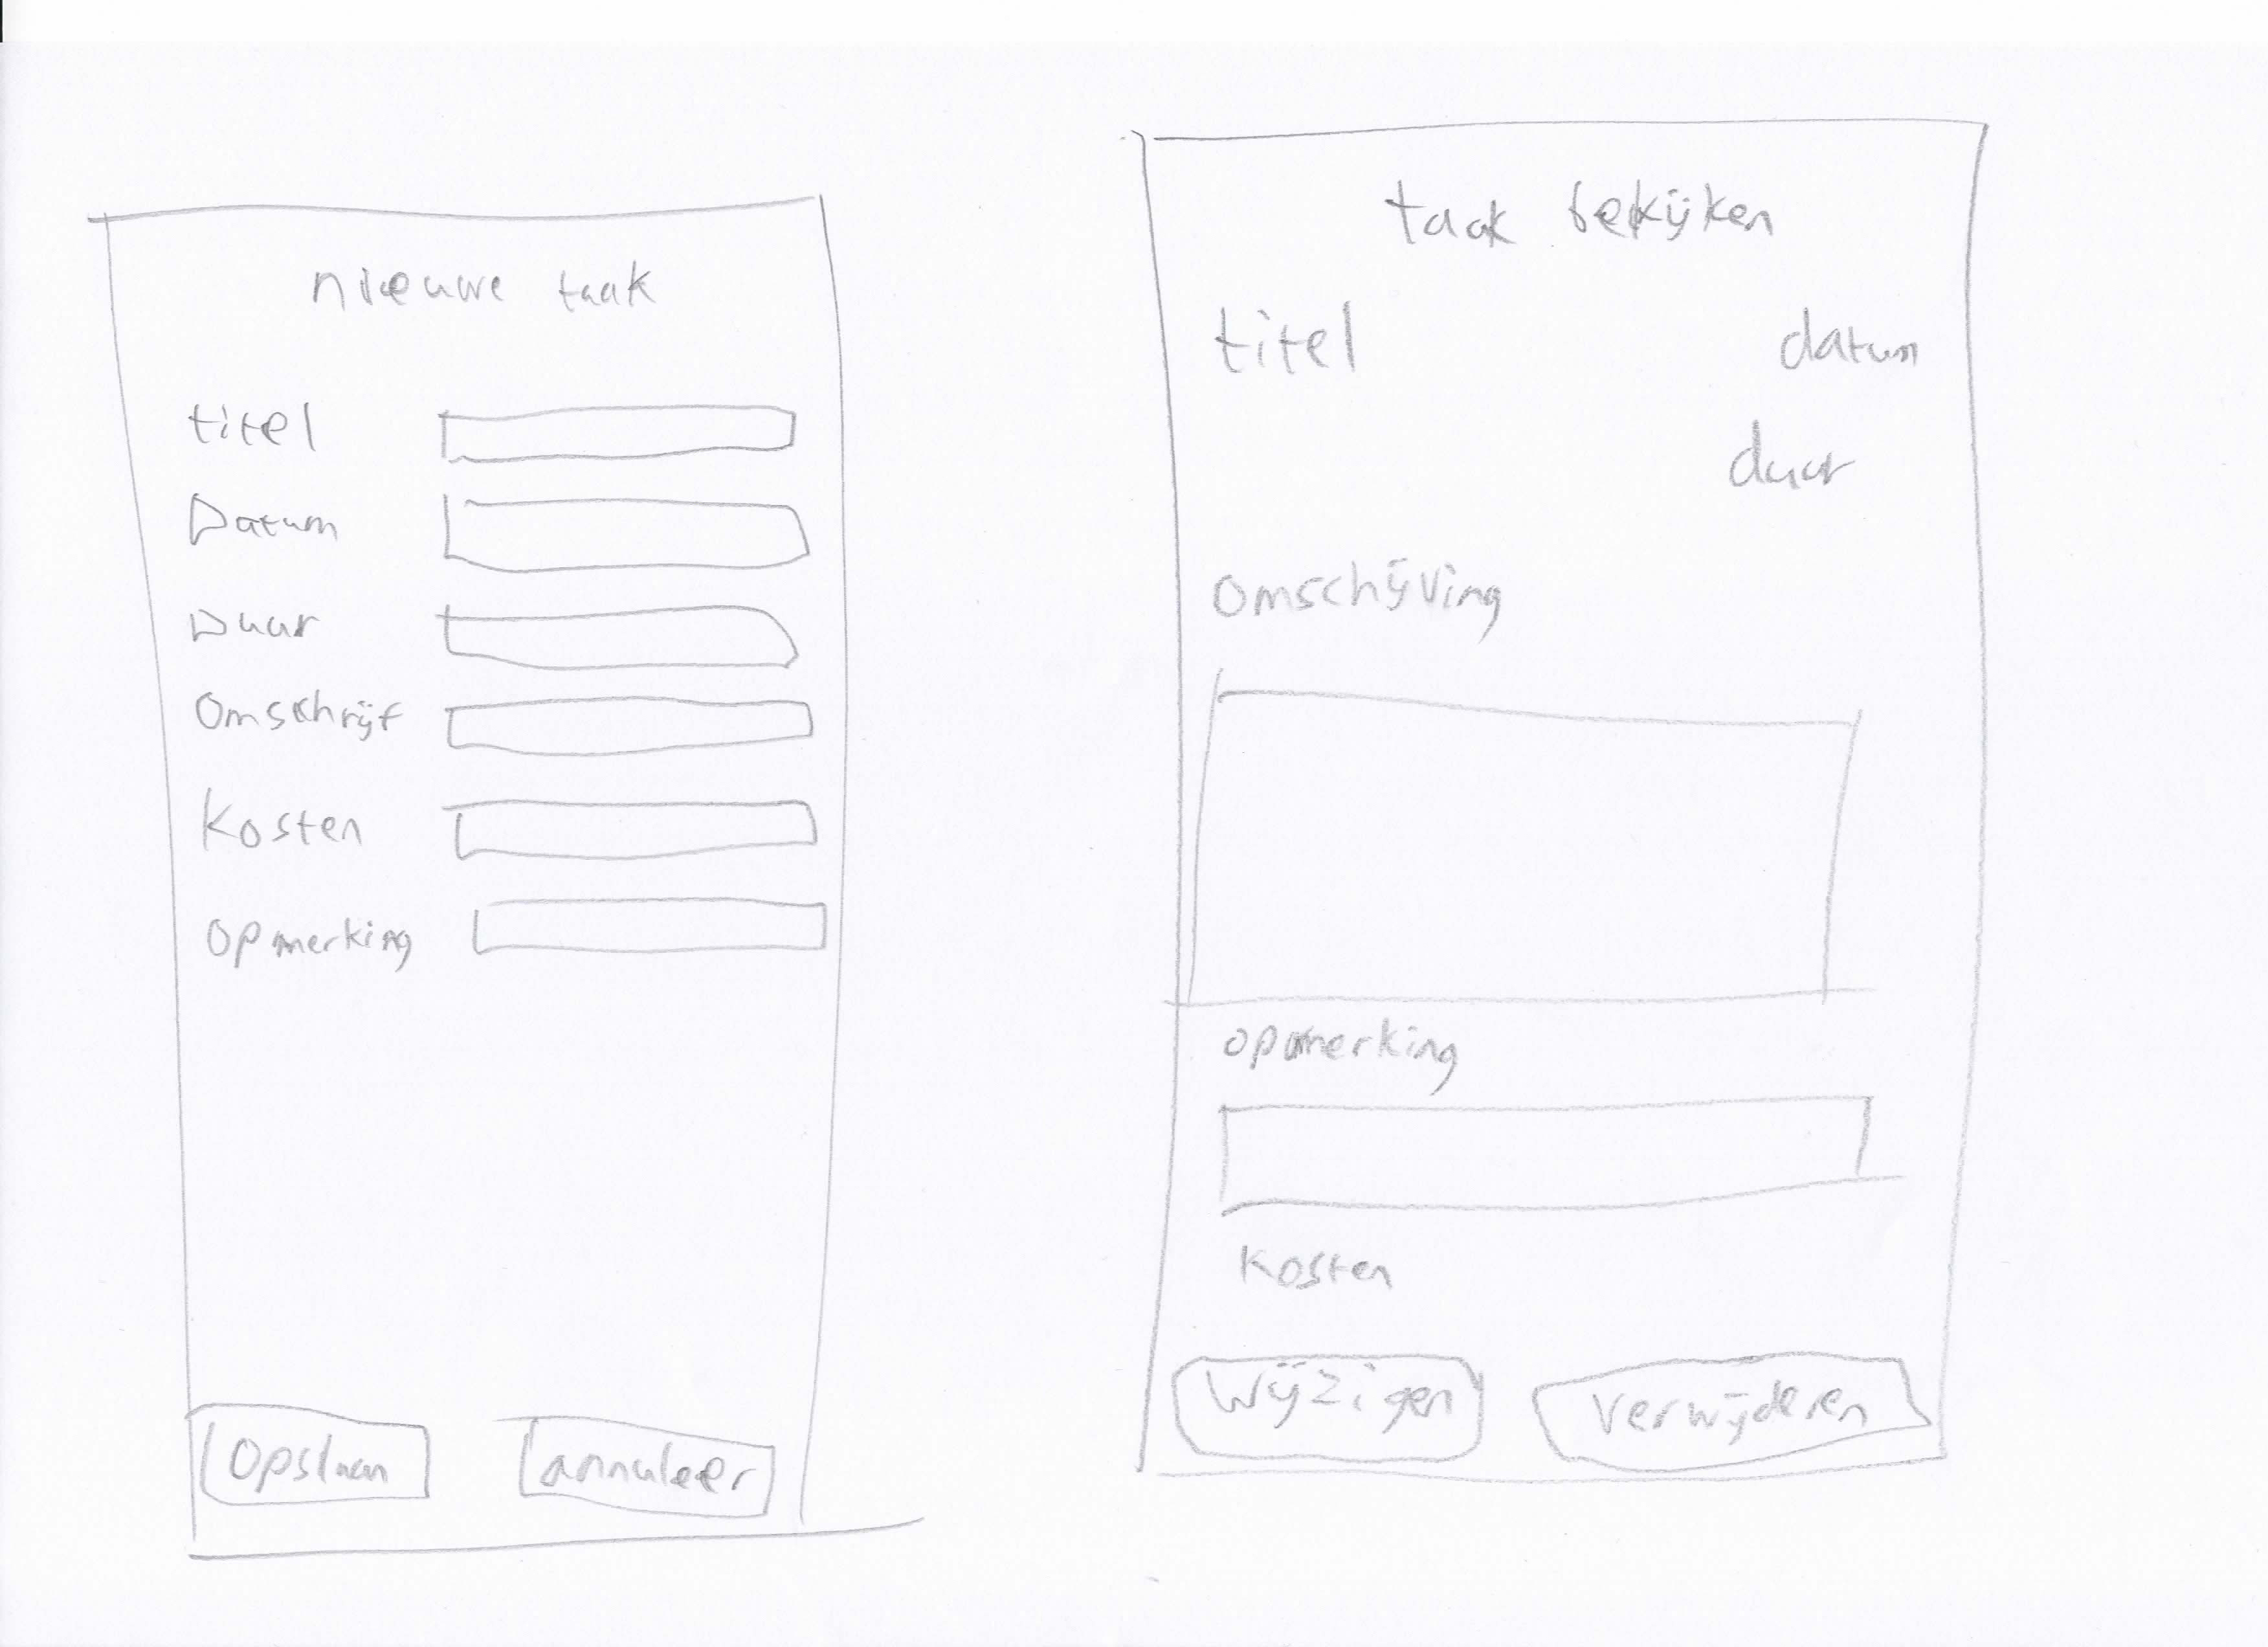 nieuwe taak
titel
Datum
Duur
Omschrijf
Kosten
opmerking
Opslaan
annuleer
taak bekijken
titel datum
duur
Omschijving
opmerking
Kosten
Wijzigen
Verwijderen